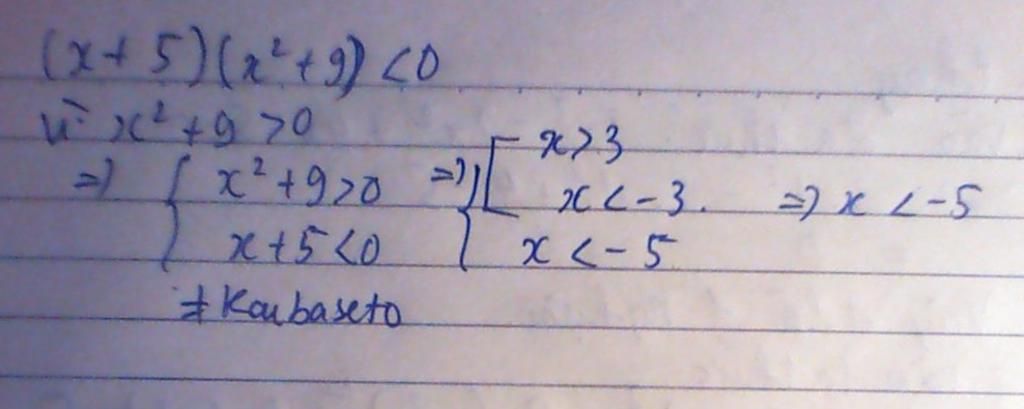 (x+5)(x²+9) <0
vì x²+9 >0
=> { x²+9>0 => { [ x>3
x<-3. => x < -5
x+5<0 x < -5
≠ Koubaseto